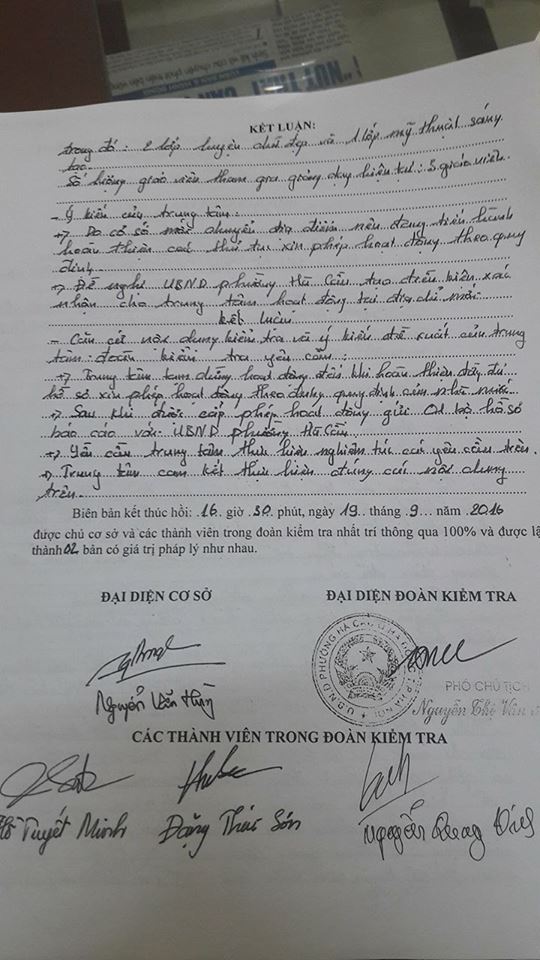 KẾT LUẬN:
trong đó: 2 lớp luyện chữ đẹp và 1 lớp mỹ thuật sáng
tạo
Số lượng giáo viên tham gia giảng dạy hiện tại: 3 giáo viên
- Ý kiến của trung tâm:
+> Do cơ sở mới chuyển địa điểm nên đang tiến hành
hoàn thiện các thủ tục xin phép hoạt động theo quy
định.
+> Đề nghị UBND phường Hà Cầu tạo điều kiện xác
nhận cho trung tâm hoạt động tại địa chỉ mới
Kết luận
- Căn cứ nội dung kiểm tra và ý kiến đề xuất của trung
tâm đoàn kiểm tra yêu cầu:
+> Trung tâm tạm dừng hoạt động đến khi hoàn thiện đầy đủ
hồ sơ xin phép hoạt động theo đúng quy định của nhà nước.
+> Sau khi được cấp phép hoạt động gửi 01 bộ hồ sơ
báo cáo với UBND phường Hà Cầu.
+> Yêu cầu trung tâm thực hiện nghiêm túc các yêu cầu trên.
+> Trung tâm cam kết thực hiện đúng các nội dung
trên.
Biên bản kết thúc hồi: 16 giờ 30 phút, ngày 19 tháng 9 năm 2016
được chủ cơ sở và các thành viên trong đoàn kiểm tra nhất trí thông qua 100% và được lậ
thành 02 bản có giá trị pháp lý như nhau.
ĐẠI DIỆN CƠ SỞ ĐẠI DIỆN ĐOÀN KIỂM TRA
U.B.N.D PHƯỜNG HÀ CẦU
PHÓ CHỦ TỊCH
Nguyễn Văn Nguyễn Thị Vân
CÁC THÀNH VIÊN TRONG ĐOÀN KIỂM TRA
Tuyết Minh Đặng Thái Sơn Nguyễn Quang